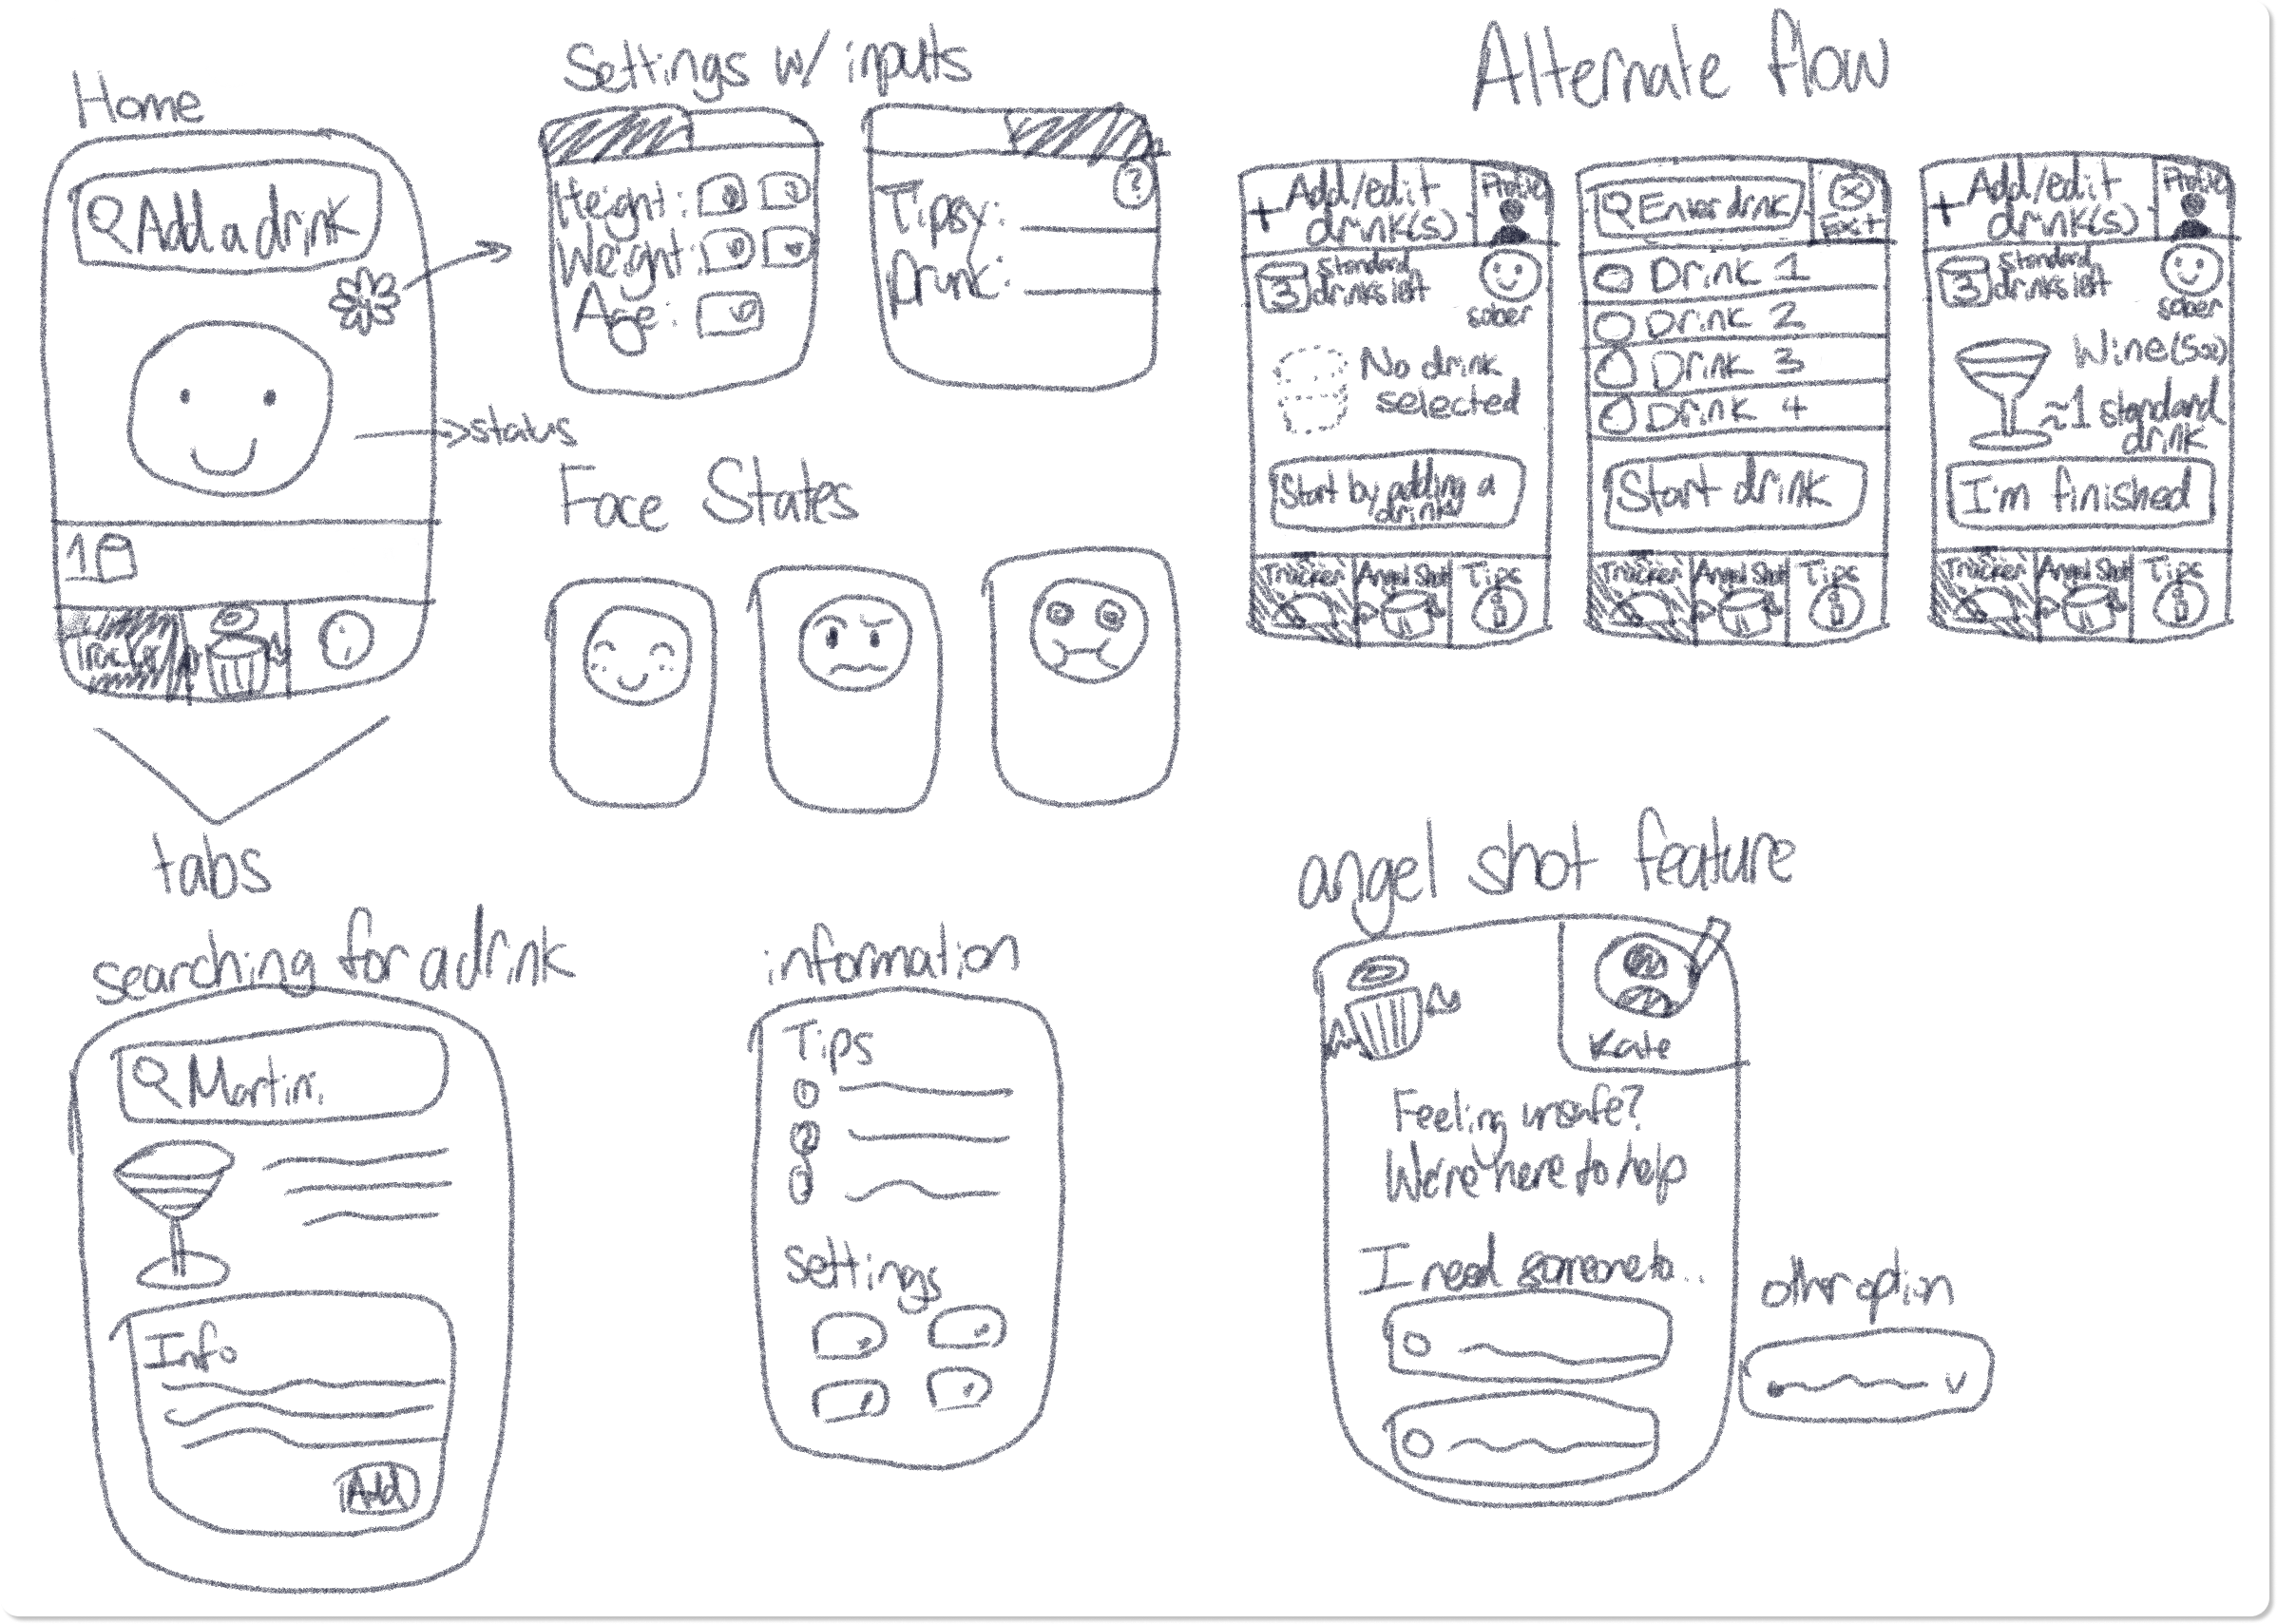 Home
Add a drink
status
1
Tracker
tabs
Settings w/ inputs
Height:
Weight:
Age:
?
Tipsy:
Drunk:
Face States
Alternate flow
+ Add/edit drink(s)
Profile
3 standard drinks left
sober
No drink selected
Start by adding a drink
Tracker
Angel Shot
Tips
Enter drink
Exit
Drink 1
Drink 2
Drink 3
Drink 4
Start drink
Tracker
Angel Shot
Tips
+ Add/edit drink(s)
Profile
3 standard drinks left
sober
≈1 standard drink
I'm finished
Tracker
Angel Shot
Tips
searching for a drink
Martini
Info
Add
information
Tips
settings
angel shot feature
Kate
Feeling unsafe?
We're here to help
I need someone to...
other option